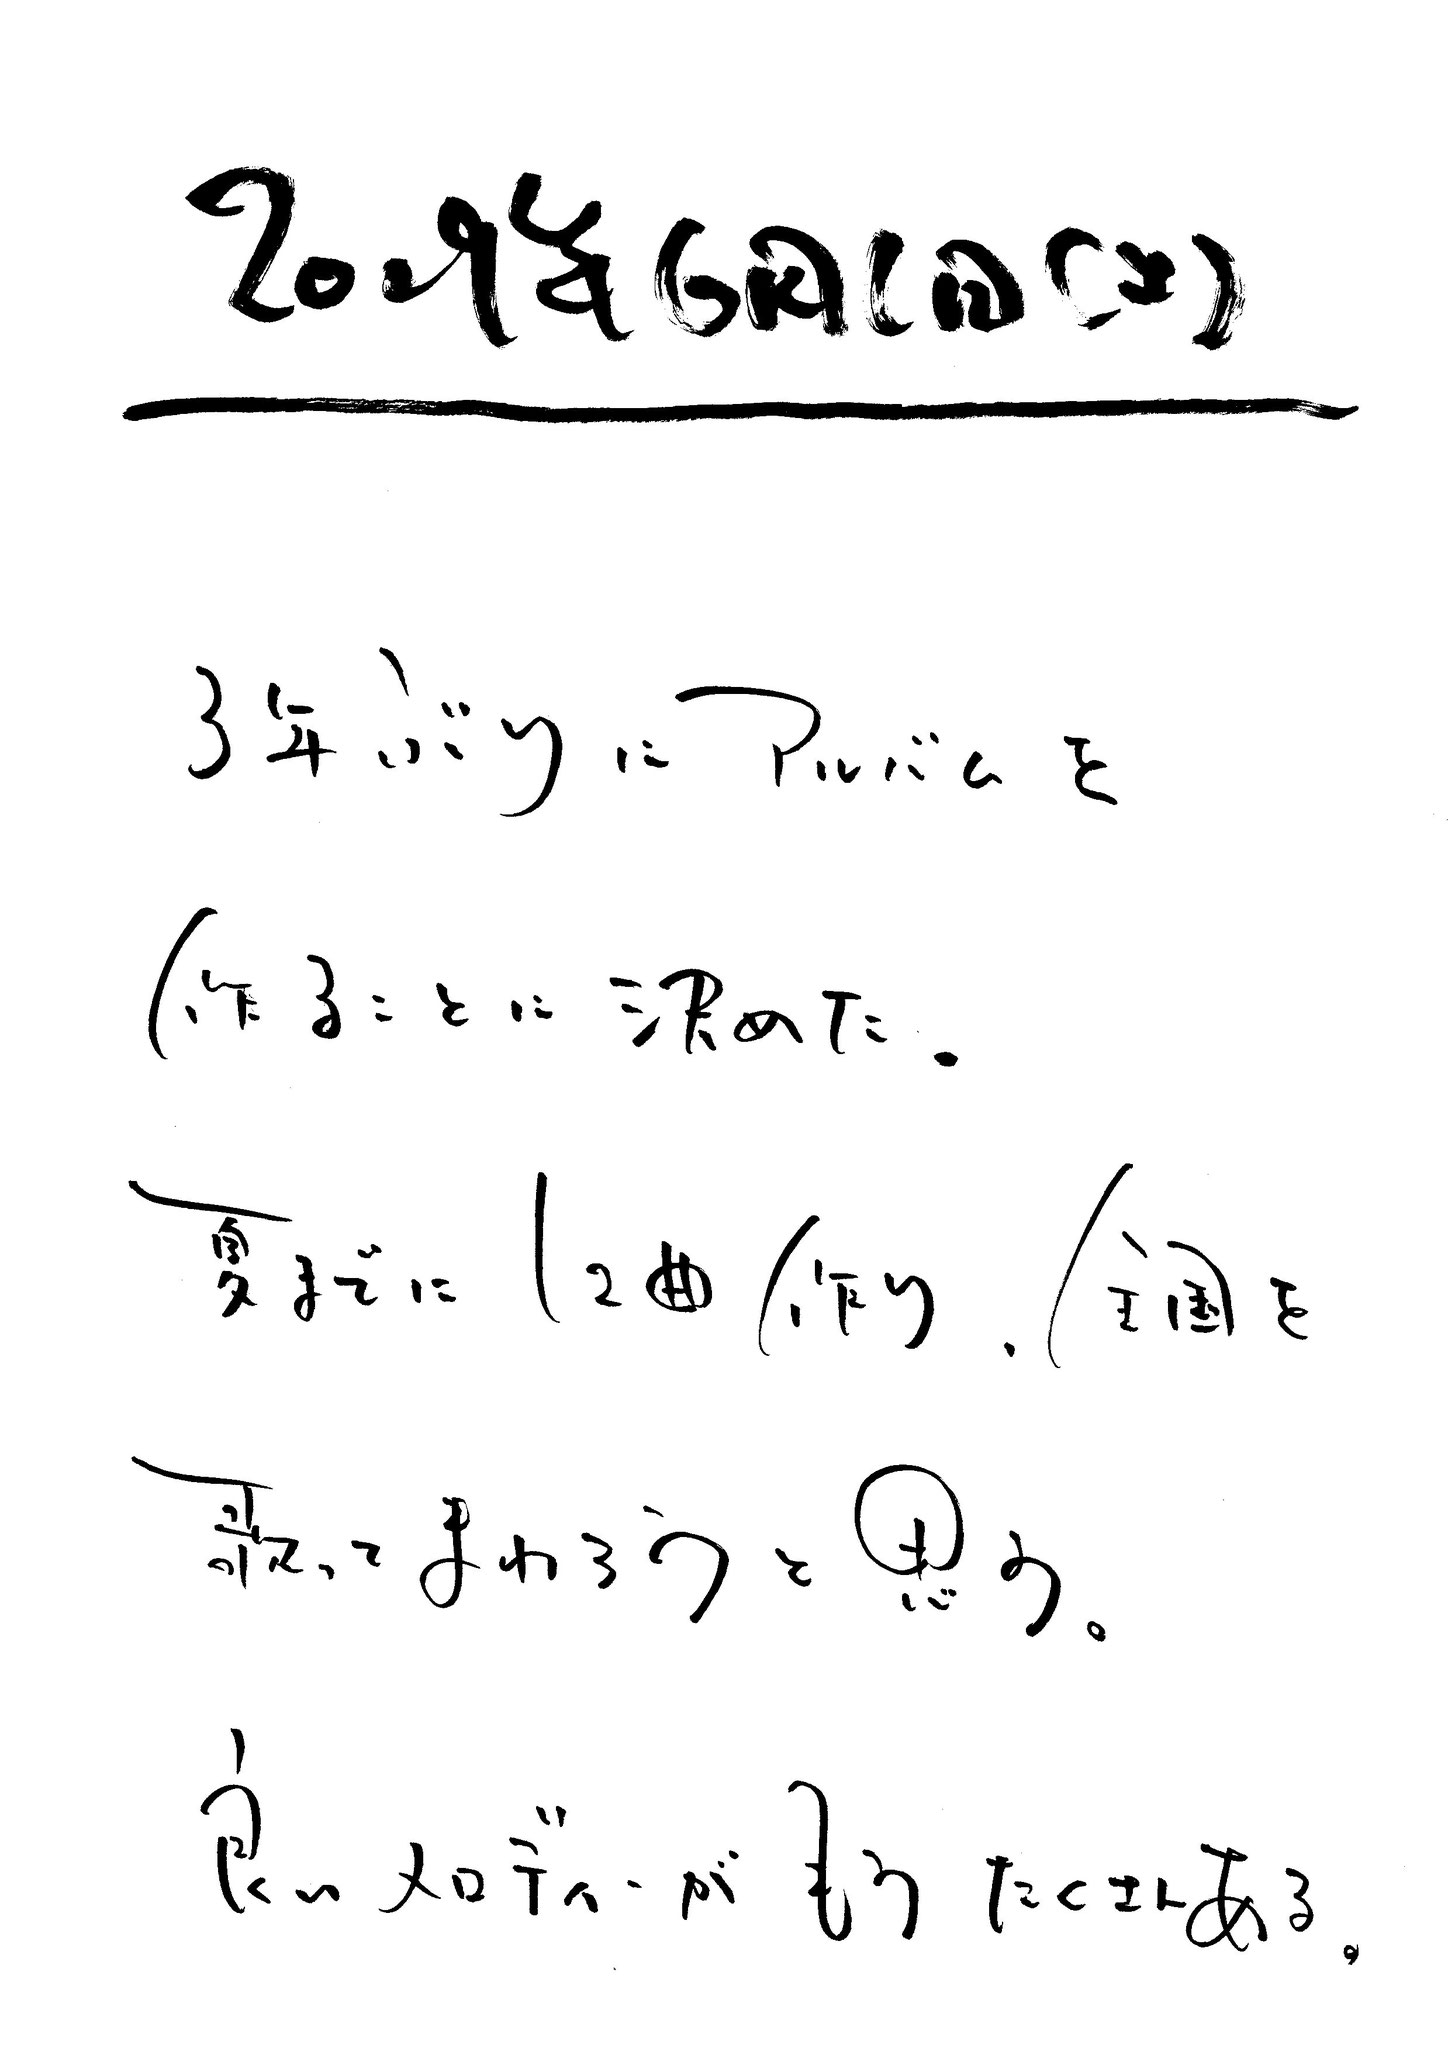 2019年6月1日(土)
3年ぶりにアルバムを
作ることに決めた.
夏までに12曲作り、全国を
歌ってまわろうと思う。
良いメロディーがもうたくさんある。